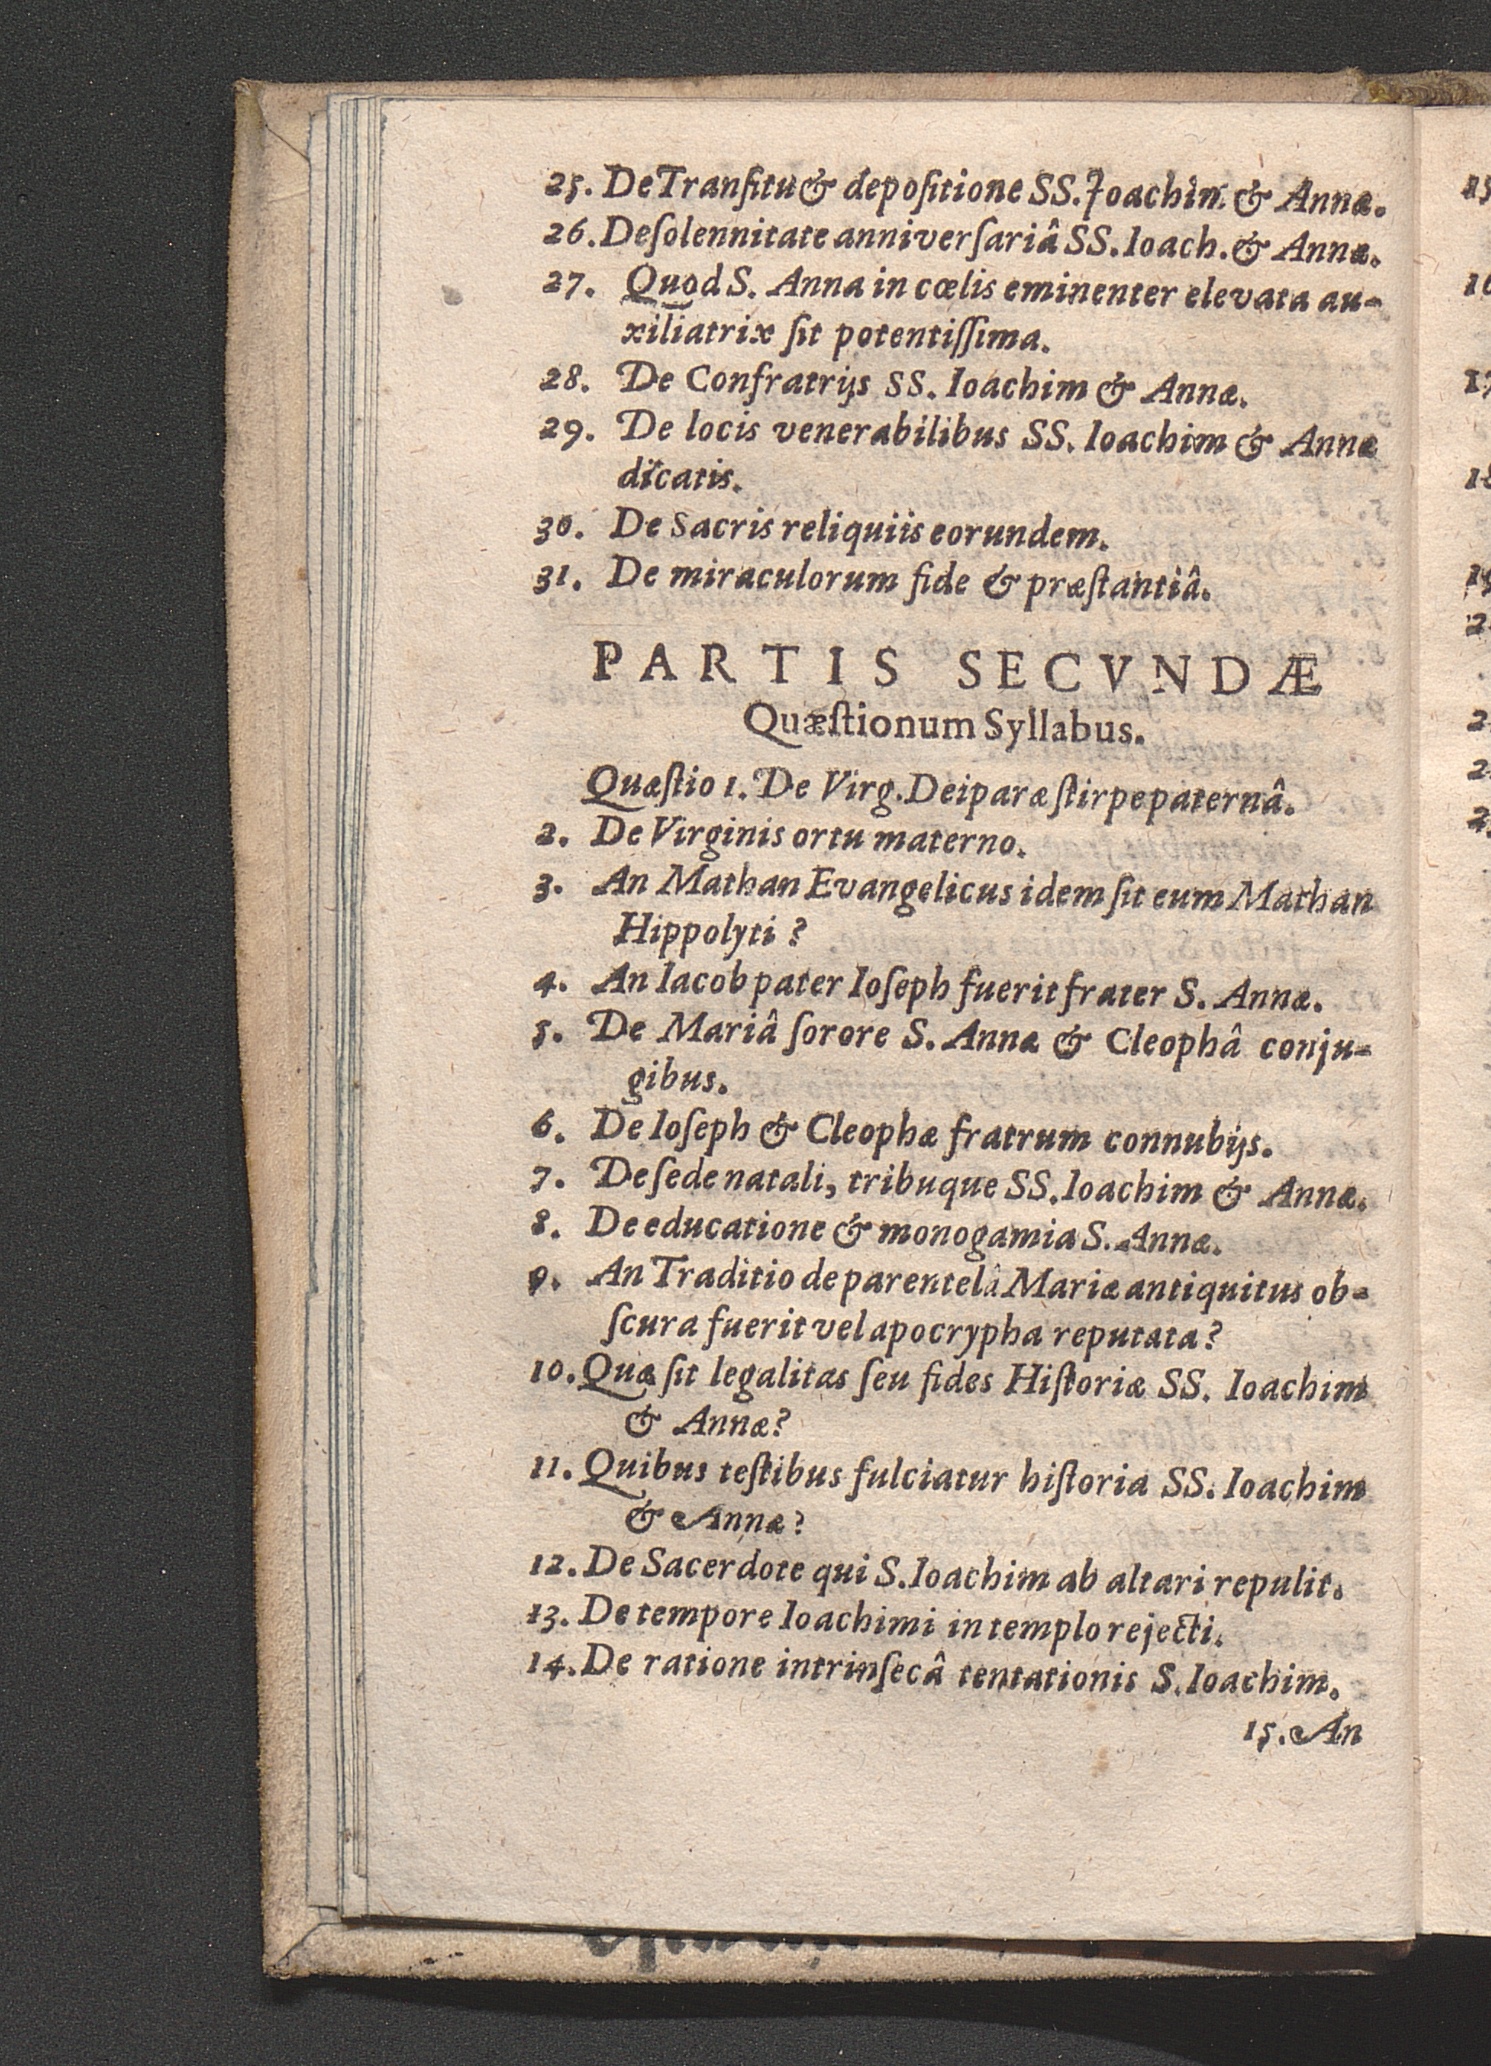 25. De Tranſitu & depoſitione SS. Joachim & Annæ.
26. De ſolennitate anniverſariâ SS. Ioach. & Annæ.
27. Quod S. Anna in cœlis eminenter elevata au-
xiliatrix ſit potentiſſima.
28. De Confratrijs SS. Ioachim & Annæ.
29. De locis venerabilibus SS. Ioachim & Annæ
dicatis.
30. De Sacris reliquiis eorundem.
31. De miraculorum fide & præſtantiâ.
PARTIS SECVNDÆ
Quæſtionum Syllabus.
Quæſtio 1. De Virg. Deiparæ ſtirpe paternâ.
2. De Virginis ortu materno.
3. An Mathan Evangelicus idem ſit eum Mathan
Hippolyti?
4. An Iacob pater Ioſeph fuerit frater S. Annæ.
5. De Mariâ ſorore S. Annæ & Cleophâ conju-
gibus.
6. De Ioſeph & Cleophæ fratrum connubijs.
7. De ſede natali, tribuque SS. Ioachim & Annæ.
8. De educatione & monogamia S. Annæ.
9. An Traditio de parentelâ Mariæ antiquitus ob-
ſcura fuerit vel apocrypha reputata?
10. Quæ ſit legalitas ſeu fides Hiſtoriæ SS. Ioachim
& Annæ?
11. Quibus teſtibus fulciatur hiſtoria SS. Ioachim
& Annæ?
12. De Sacerdote qui S. Ioachim ab altari repulit.
13. De tempore Ioachimi in templo rejecti.
14. De ratione intrinſecâ tentationis S. Ioachim.
15. An